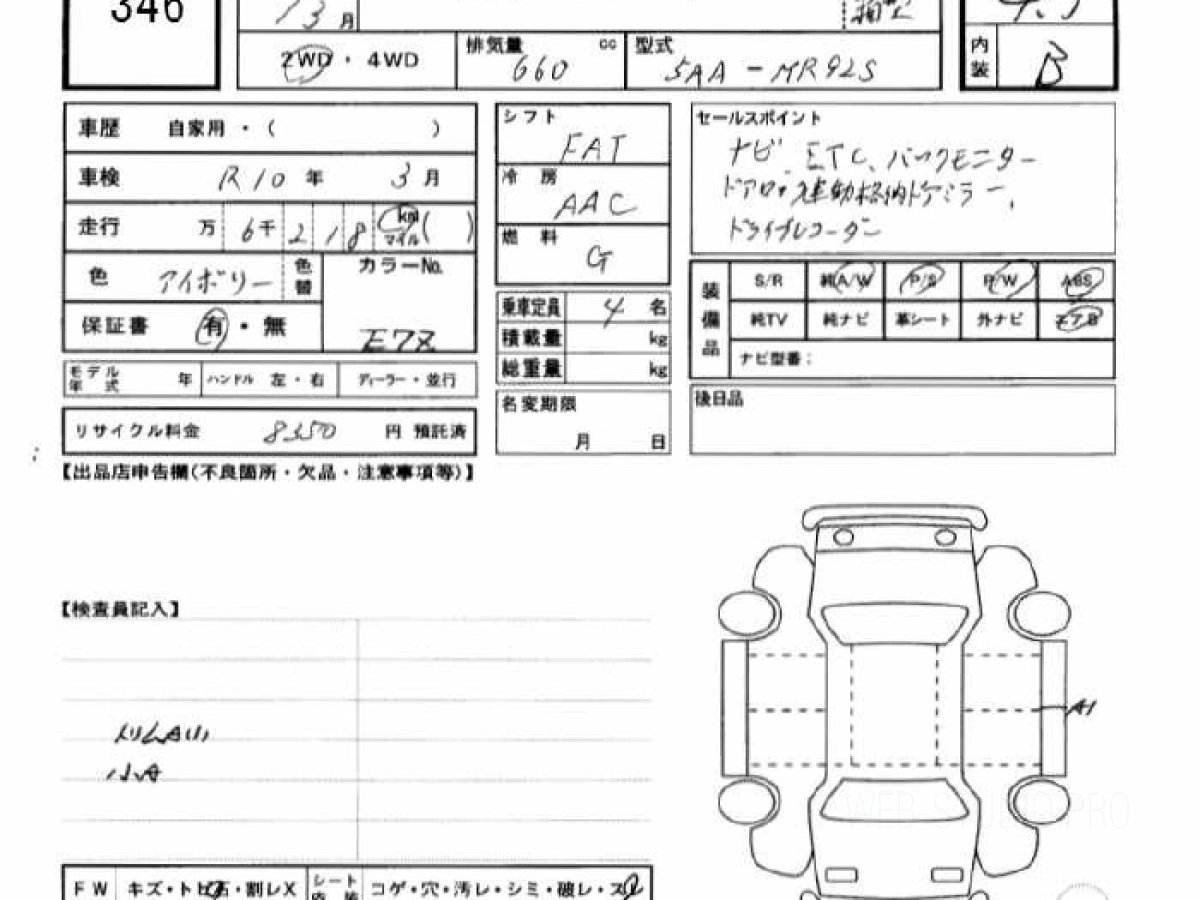 346
13月
2WD・4WD
排気量 cc 660
型式 5AA-MR92S
内装 B
車歴 自家用・( )
車検 R10年 3月
走行 万 6千218 km マイル( )
色 アイボリー 色替
カラーNo. E7Z
保証書 有・無
モデル年式 年 ハンドル 左・右 ディーラー・並行
リサイクル料金 8350 円 預託済
シフト FAT
冷房 AAC
燃料 G
乗車定員 4 名
積載量 kg
総重量 kg
名変期限
月 日
セールスポイント
ナビ、ETC、バックモニター
電動格納ドアミラー、
ドライブレコーダー
装備品
S/R 純A/W P/S P/W ABS
純TV 純ナビ 革シート 外ナビ エアB
ナビ型番:
後日品
【出品店申告欄(不良箇所・欠品・注意事項等)】
【検査員記入】
小A
A1
FW キズ・トビ石・割レX
シート内装 コゲ・穴・汚レ・シミ・破レ・スレ
WEB STUDIO PRO